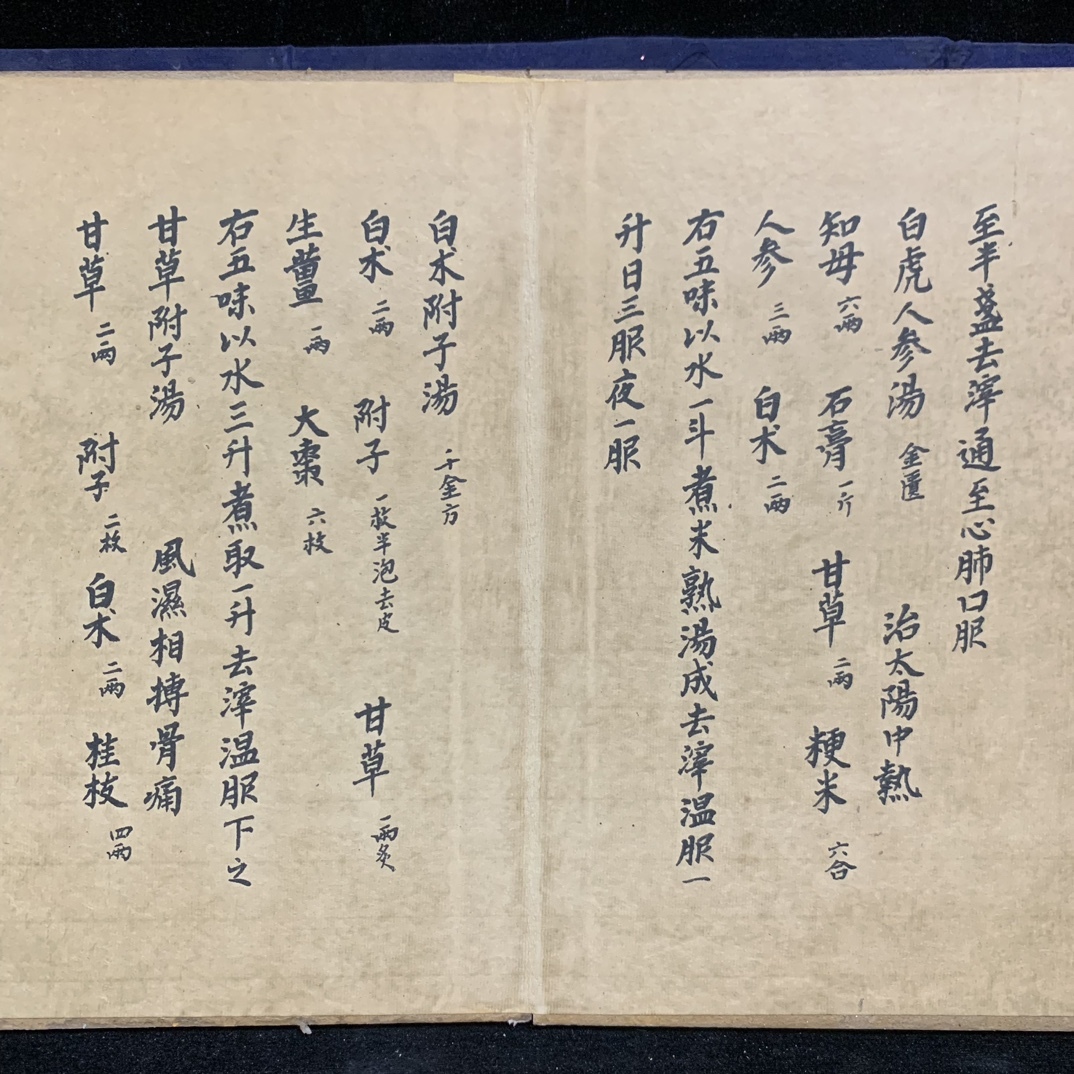 至半盞去滓通至心肺口服
白虎人參湯 金匱 治太陽中熱
知母 六兩 石膏 一斤 甘草 二兩 粳米 六合
人參 三兩 白朮 二兩
右五味以水一斗煮米熟湯成去滓溫服一
升日三服夜一服
白朮附子湯 千金方
白朮 二兩 附子 一枚半泡去皮 甘草 一兩炙
生薑 一兩 大棗 六枚
右五味以水三升煮取一升去滓溫服下之
甘草附子湯 風濕相搏骨痛
甘草 二兩 附子 二枚 白朮 二兩 桂枝 四兩